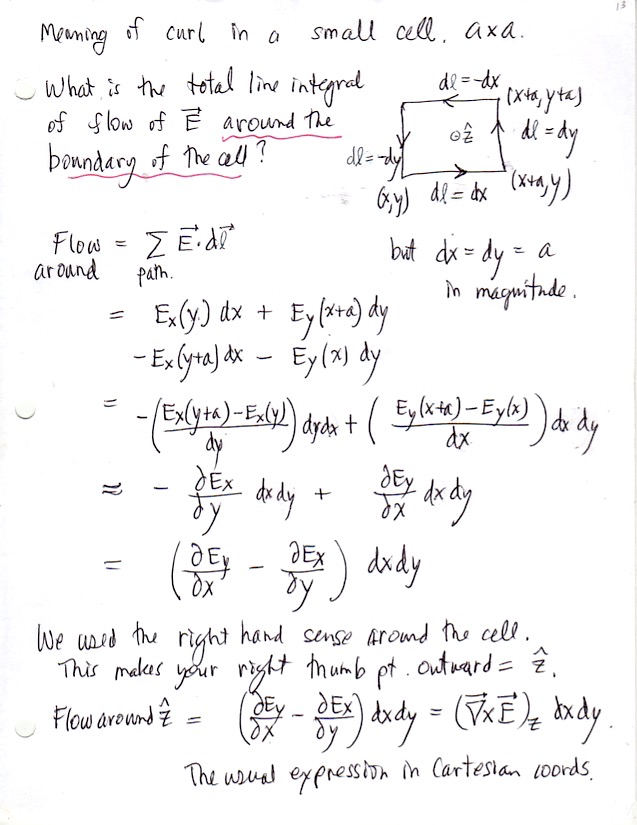 13
Meaning of curl in a small cell, a×a.
What is the total line integral
of flow of E⃗ around the
boundary of the cell?
dl = -dx
(x+a, y+a)
⊙ẑ
dl = dy
dl = -dy
(x,y) dl = dx (x+a,y)
Flow around = Σ path. E⃗·dl⃗
but dx = dy = a
in magnitude.
= Ex(y) dx + Ey(x+a) dy
- Ex(y+a) dx - Ey(x) dy
= -((Ex(y+a) - Ex(y))/dy) dydx + ((Ey(x+a) - Ey(x))/dx) dx dy
≈ - ∂Ex/∂y dxdy + ∂Ey/∂x dxdy
= (∂Ey/∂x - ∂Ex/∂y) dxdy
We used the right hand sense around the cell.
This makes your right thumb pt. outward = ẑ.
Flow around ẑ = (∂Ey/∂x - ∂Ex/∂y) dxdy = (∇⃗×E⃗)z dxdy.
The usual expression in Cartesian coords.